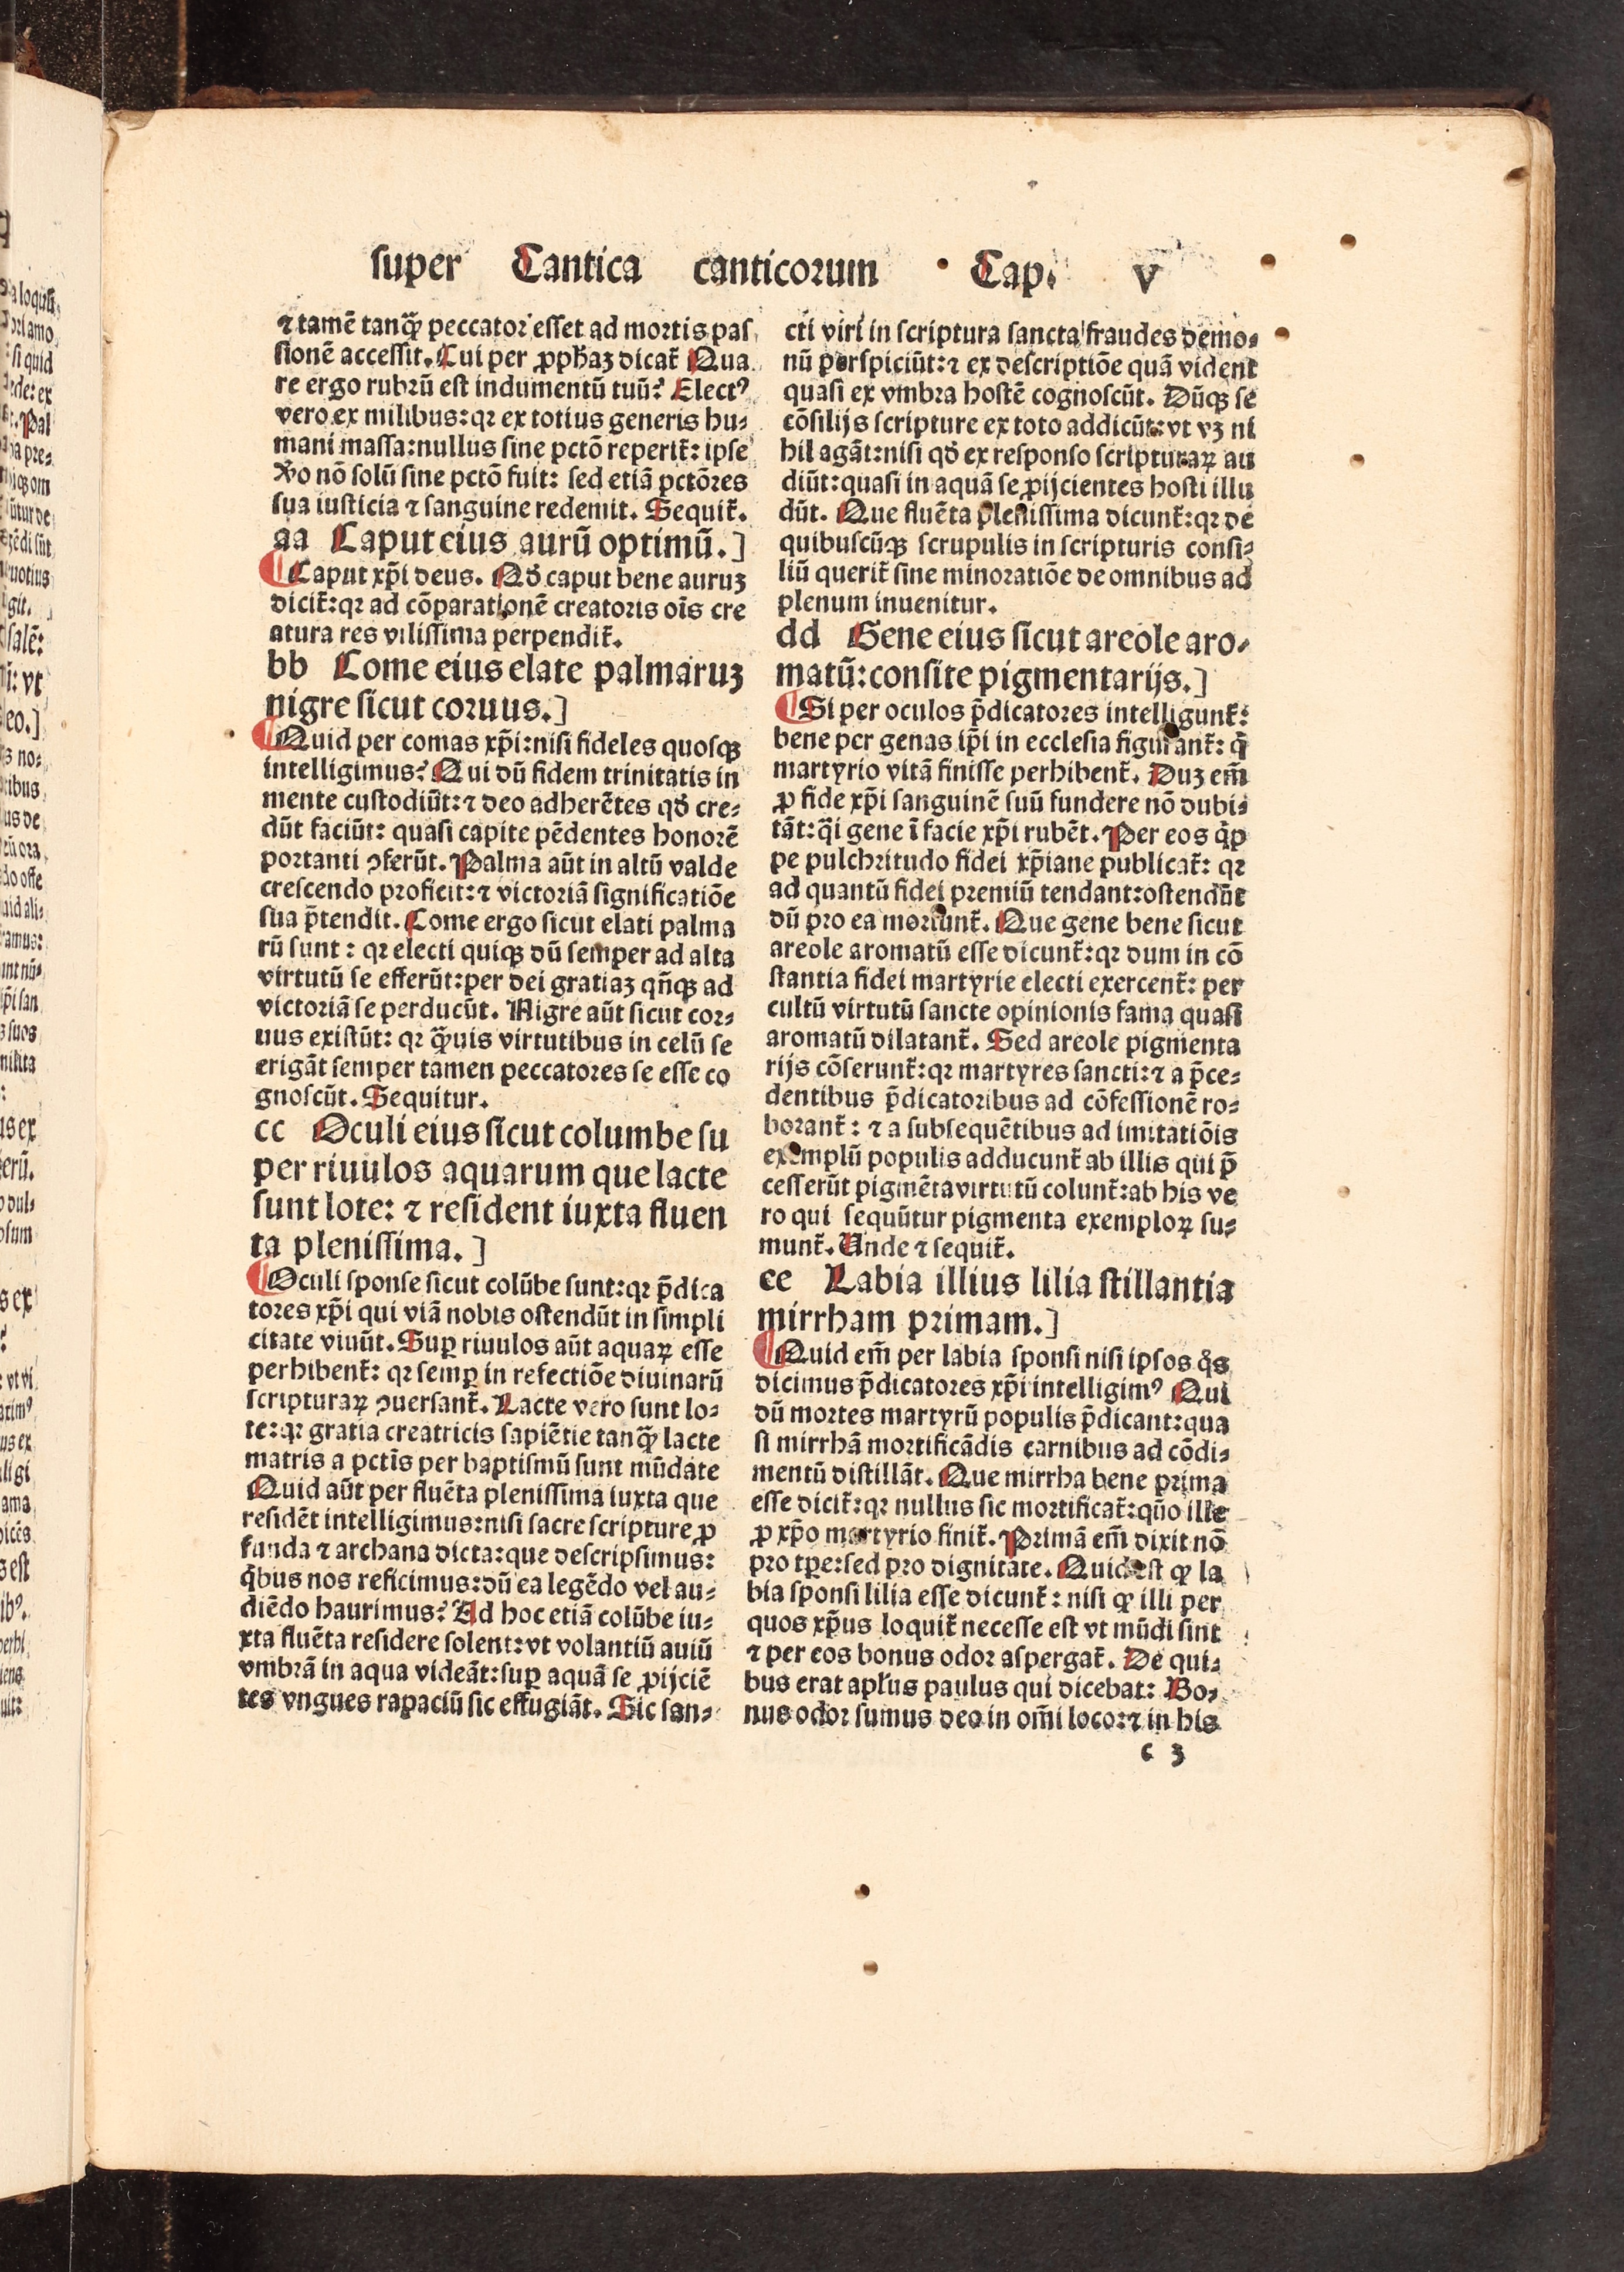 super Cantica canticorum . Cap. V
⁊ tamẽ tanꝙ̃ peccator esset ad mortis pas
sionẽ accessit. Cui per ꝓpħaꝫ dicat᷑ Qua
re ergo rubrũ est indumentũ tuũ? Elect⁹
vero ex milibus: qꝛ ex totius generis hu-
mani massa: nullus sine pctõ reperit᷑: ipse
v̾o nõ solũ sine pctõ fuit: sed etiã pctõres
sua iusticia ⁊ sanguine redemit. Sequit᷑.
aa Caput eius aurũ optimũ.]
¶ Caput xp̃i deus. Qđ caput bene auruꝫ
dicit᷑: qꝛ ad cõparationẽ creatoris oĩs cre
atura res vilissima perpendit᷑.
bb Come eius elate palmaruꝫ
nigre sicut coruus.]
¶ Quid per comas xp̃i: nisi fideles quosqꝫ
intelligimus? Qui dũ fidem trinitatis in
mente custodiũt: ⁊ deo adherẽtes qđ cre-
dũt faciũt: quasi capite pẽdentes honorẽ
portanti ꝯferũt. Palma aũt in altũ valde
crescendo proficit: ⁊ victoriã significatiõe
sua p̃tendit. Come ergo sicut elati palma
rũ sunt: qꝛ electi quiqꝫ dũ semper ad alta
virtutũ se efferũt: per dei gratiaꝫ qñqꝫ ad
victoriã se perducũt. Nigre aũt sicut cor-
uus existũt: qꝛ ꝙ̃uis virtutibus in celũ se
erigãt semper tamen peccatores se esse co
gnoscũt. Sequitur.
cc Oculi eius sicut columbe su
per riuulos aquarum que lacte
sunt lote: ⁊ resident iuxta fluen
ta plenissima.]
¶ Oculi sponse sicut colũbe sunt: qꝛ p̃dica
tores xp̃i qui viã nobis ostendũt in simpli
citate viuũt. Suꝑ riuulos aũt aquaꝝ esse
perhibent᷑: qꝛ semꝑ in refectiõe diuinarũ
scripturaꝝ ꝯuersant᷑. Lacte vero sunt lo-
te: qꝛ gratia creatricis sapiẽtie tanꝙ̃ lacte
matris a pctĩs per baptismũ sunt mũdate
Quid aũt per fluẽta plenissima iuxta que
residẽt intelligimus: nisi sacre scripture ꝓ
funda ⁊ archana dicta: que descripsimus:
q̇bus nos reficimus: dũ ea legẽdo vel au-
diẽdo haurimus? Ad hoc etiã colũbe iu-
xta fluẽta residere solent: vt volantiũ auiũ
vmbrã in aqua videãt: suꝑ aquã se ꝓijciẽ
tes vngues rapaciũ sic effugiãt. Sic san-
cti viri in scriptura sancta fraudes demo-
nũ perspiciũt: ⁊ ex descriptiõe quã vident
quasi ex vmbra hostẽ cognoscũt. Dũqꝫ se
cõsilijs scripture ex toto addicũt: vt vꝫ ni
hil agãt: nisi qđ ex responso scripturaꝝ au
diũt: quasi in aquã se ꝓijcientes hosti illu
dũt. Que fluẽta plenissima dicunt᷑: qꝛ de
quibuscũqꝫ scrupulis in scripturis consi-
liũ querit᷑ sine minoratiõe de omnibus ad
plenum inuenitur.
dd Gene eius sicut areole aro-
matũ: consite pigmentarijs.]
¶ Si per oculos p̃dicatores intelligunt᷑:
bene per genas ip̃i in ecclesia figurant᷑: q̃
martyrio vitã finisse perhibent᷑. Duꝫ em̃
ꝓ fide xp̃i sanguinẽ suũ fundere nõ dubi-
tãt: q̃si gene ĩ facie xp̃i rubẽt. Per eos q̇ꝑ
pe pulchritudo fidei xp̃iane publicat᷑: qꝛ
ad quantũ fidei premiũ tendant: ostendũt
dũ pro ea moriunt᷑. Que gene bene sicut
areole aromatũ esse dicunt᷑: qꝛ dum in cõ
stantia fidei martyrie electi exercent᷑: per
cultũ virtutũ sancte opinionis fama quasi
aromatũ dilatant᷑. Sed areole pigmenta
rijs cõserunt᷑: qꝛ martyres sancti: ⁊ a p̃ce-
dentibus p̃dicatoribus ad cõfessionẽ ro-
borant᷑: ⁊ a subsequẽtibus ad imitatiõis
exemplũ populis adducunt᷑ ab illis qui p̃
cesserũt pigmẽta virtutũ colunt᷑: ab his ve
ro qui sequũtur pigmenta exemploꝝ su-
munt᷑. Unde ⁊ sequit᷑.
ee Labia illius lilia stillantia
mirrham primam.]
¶ Quid em̃ per labia sponsi nisi ipsos q̊s
dicimus p̃dicatores xp̃i intelligim⁹ Qui
dũ mortes martyrũ populis p̃dicant: qua
si mirrhã mortificãdis carnibus ad cõdi-
mentũ distillãt. Que mirrha bene prima
esse dicit᷑: qꝛ nullus sic mortificat᷑: quõ ille
ꝓ xp̃o martyrio finit᷑. Primã em̃ dixit nõ
pro tpe: sed pro dignitate. Quid est ꝙ la
bia sponsi lilia esse dicunt᷑: nisi ꝙ illi per
quos xp̃us loquit᷑ necesse est vt mũdi sint
⁊ per eos bonus odor aspergat᷑. De qui-
bus erat apl̃us paulus qui dicebat: Bo-
nus odor sumus deo in om̃i loco: ⁊ in his
c 3